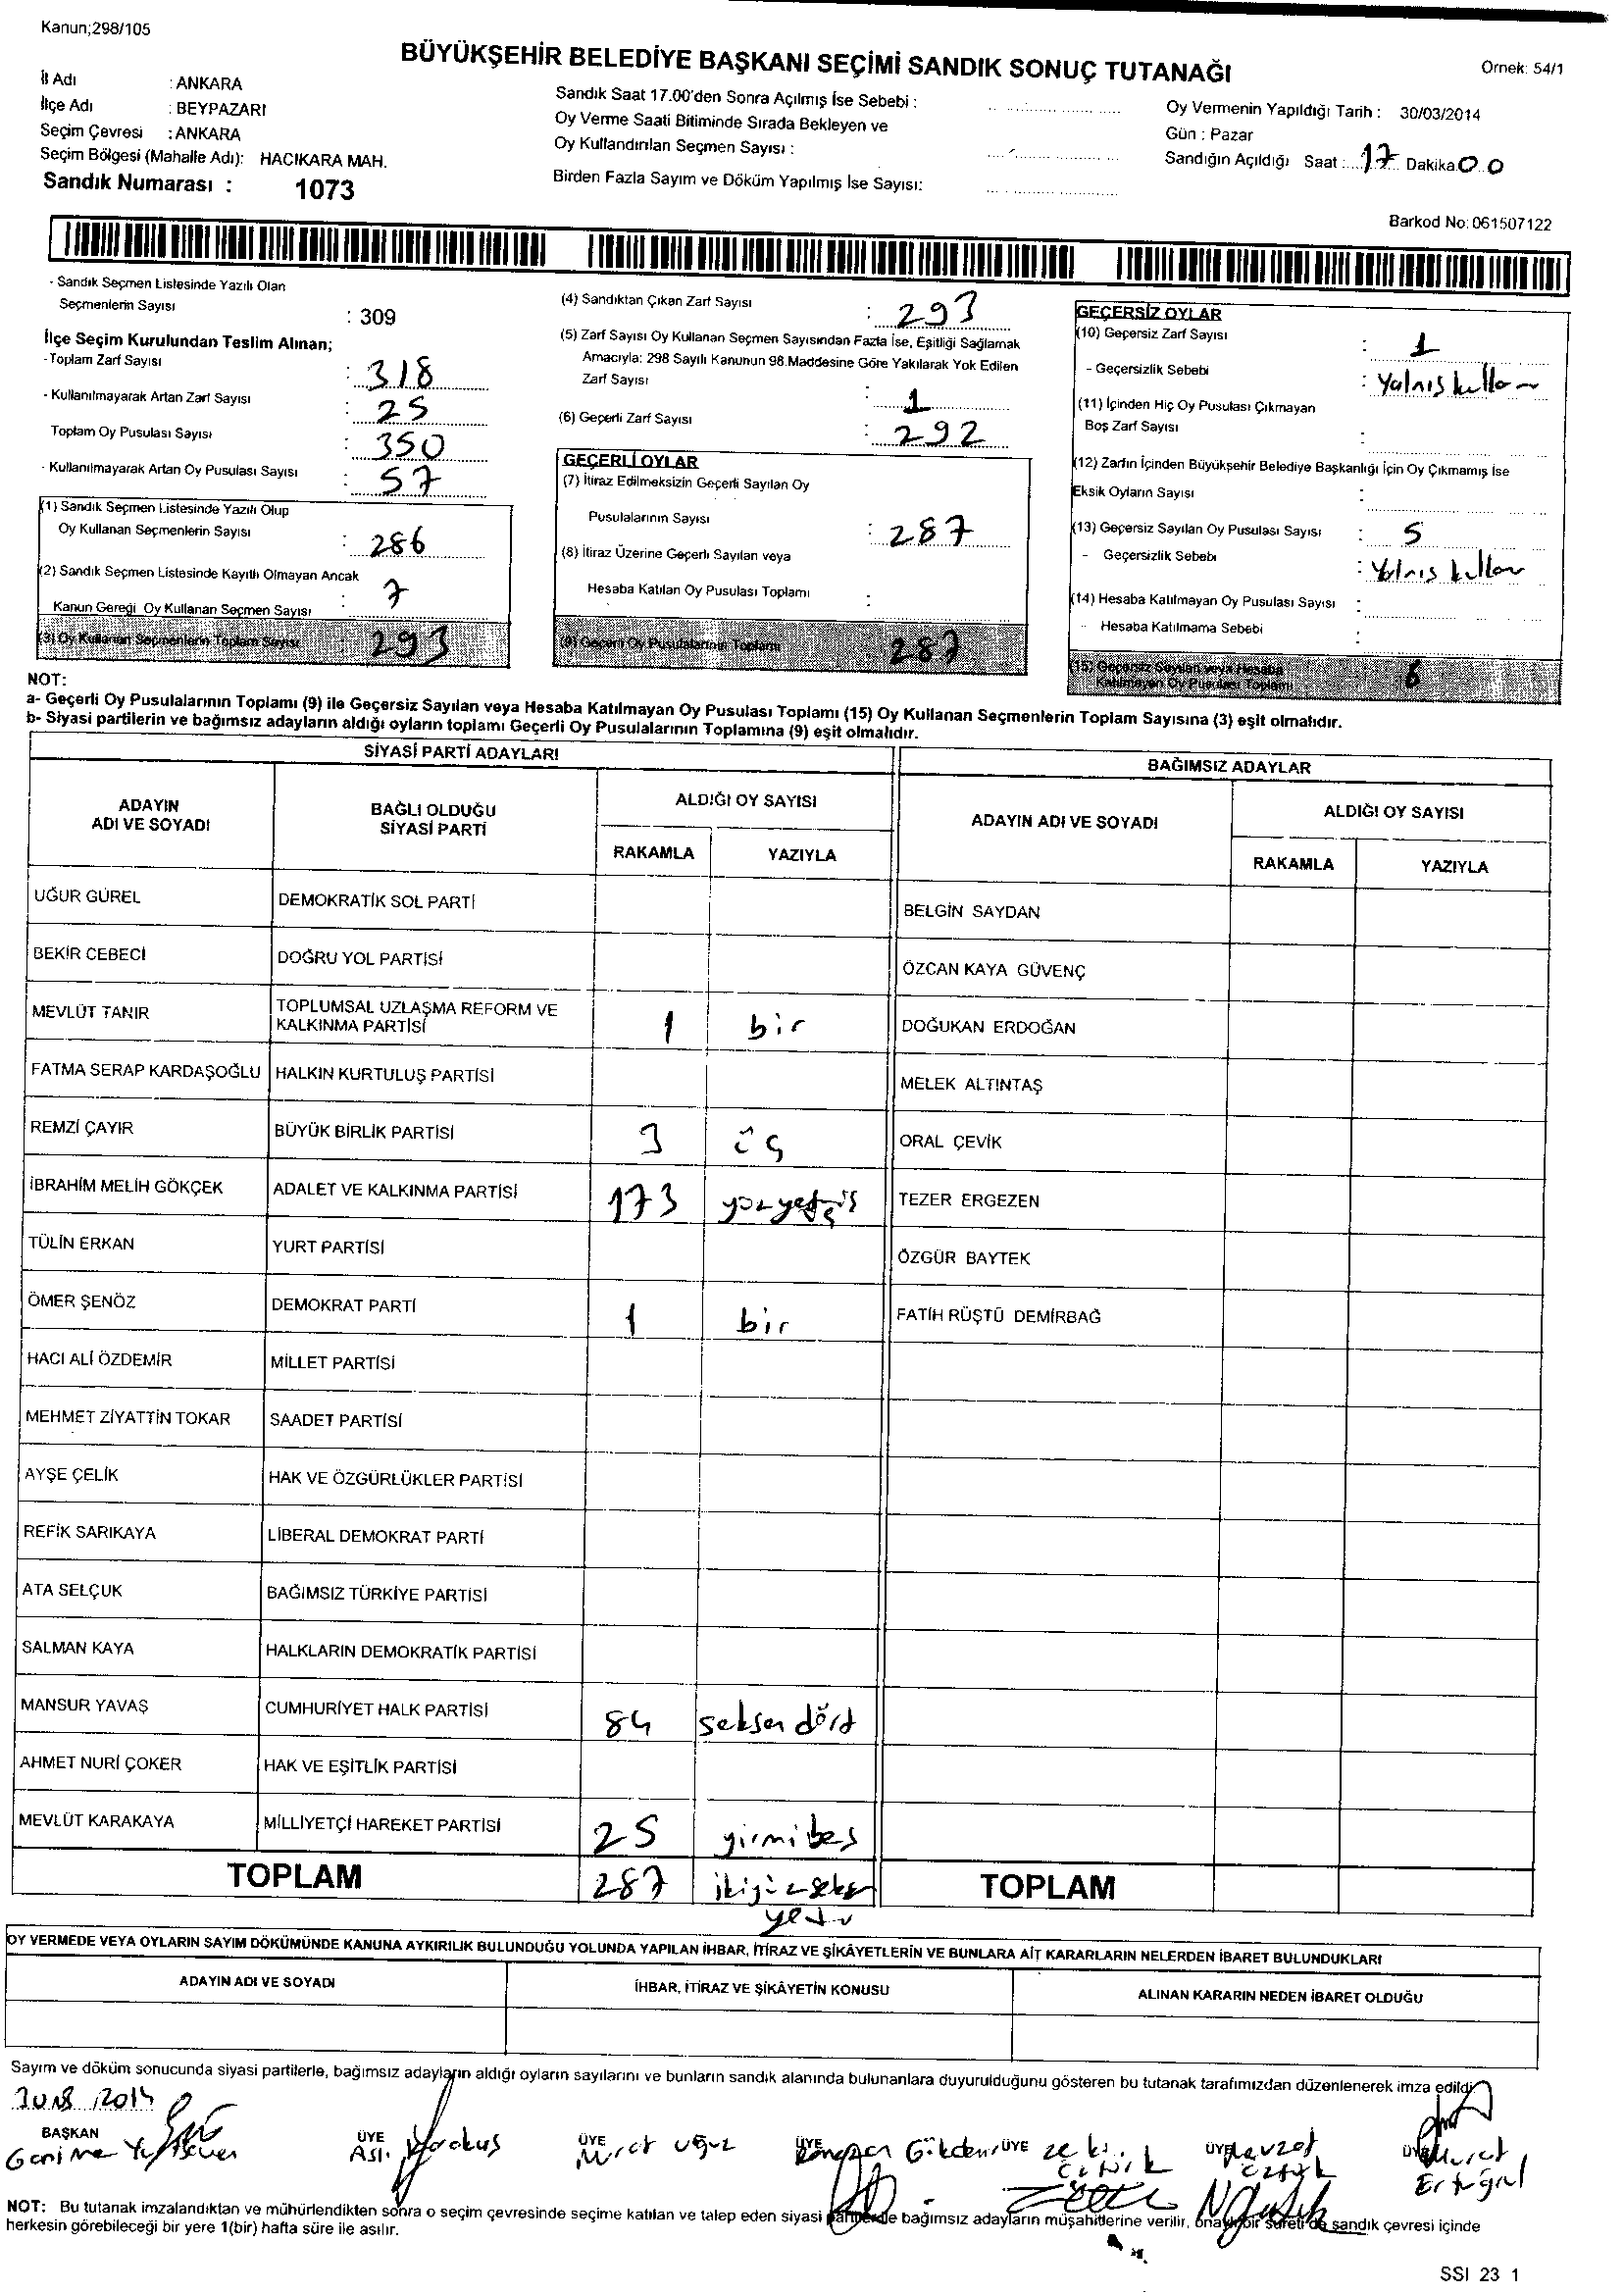 Kanun;298/105
BÜYÜKŞEHİR BELEDİYE BAŞKANI SEÇİMİ SANDIK SONUÇ TUTANAĞI
Ornek: 54/1
İl Adı : ANKARA
İlçe Adı : BEYPAZARI
Seçim Çevresi : ANKARA
Seçim Bölgesi (Mahalle Adı): HACIKARA MAH.
Sandık Numarası : 1073
Sandık Saat 17.00'den Sonra Açılmış İse Sebebi :
Oy Verme Saati Bitiminde Sırada Bekleyen ve
Oy Kullandırılan Seçmen Sayısı :
Birden Fazla Sayım ve Döküm Yapılmış İse Sayısı:
Oy Vermenin Yapıldığı Tarih : 30/03/2014
Gün : Pazar
Sandığın Açıldığı Saat : 17 Dakika 00
Barkod No: 061507122
- Sandık Seçmen Listesinde Yazılı Olan
Seçmenlerin Sayısı : 309
İlçe Seçim Kurulundan Teslim Alınan;
-Toplam Zarf Sayısı : 318
- Kullanılmayarak Artan Zarf Sayısı : 25
Toplam Oy Pusulası Sayısı : 350
- Kullanılmayarak Artan Oy Pusulası Sayısı : 57
(1) Sandık Seçmen Listesinde Yazılı Olup
Oy Kullanan Seçmenlerin Sayısı : 286
(2) Sandık Seçmen Listesinde Kayıtlı Olmayan Ancak
Kanun Gereği Oy Kullanan Seçmen Sayısı : 7
(3) Oy Kullanan Seçmenlerin Toplam Sayısı : 293
(4) Sandıktan Çıkan Zarf Sayısı : 293
(5) Zarf Sayısı Oy Kullanan Seçmen Sayısından Fazla İse, Eşitliği Sağlamak
Amacıyla: 298 Sayılı Kanunun 98.Maddesine Göre Yakılarak Yok Edilen
Zarf Sayısı : 1
(6) Geçerli Zarf Sayısı : 292
GEÇERLİ OYLAR
(7) İtiraz Edilmeksizin Geçerli Sayılan Oy
Pusulalarının Sayısı : 287
(8) İtiraz Üzerine Geçerli Sayılan veya
Hesaba Katılan Oy Pusulası Toplamı :
(9) Geçerli Oy Pusulalarının Toplamı 287
GEÇERSİZ OYLAR
(10) Geçersiz Zarf Sayısı : 1
- Geçersizlik Sebebi : Yalnış kullan
(11) İçinden Hiç Oy Pusulası Çıkmayan
Boş Zarf Sayısı :
(12) Zarfın İçinden Büyükşehir Belediye Başkanlığı İçin Oy Çıkmamış İse
Eksik Oyların Sayısı :
(13) Geçersiz Sayılan Oy Pusulası Sayısı : 5
- Geçersizlik Sebebi : Yalnış kullan
(14) Hesaba Katılmayan Oy Pusulası Sayısı :
- Hesaba Katılmama Sebebi :
(15) Geçersiz Sayılan veya Hesaba
Katılmayan Oy Pusulası Toplamı 6
NOT:
a- Geçerli Oy Pusulalarının Toplamı (9) ile Geçersiz Sayılan veya Hesaba Katılmayan Oy Pusulası Toplamı (15) Oy Kullanan Seçmenlerin Toplam Sayısına (3) eşit olmalıdır.
b- Siyasi partilerin ve bağımsız adayların aldığı oyların toplamı Geçerli Oy Pusulalarının Toplamına (9) eşit olmalıdır.
SİYASİ PARTİ ADAYLARI
BAĞIMSIZ ADAYLAR
ADAYIN ADI VE SOYADI
BAĞLI OLDUĞU SİYASİ PARTİ
ALDIĞI OY SAYISI
RAKAMLA YAZIYLA
ADAYIN ADI VE SOYADI
ALDIĞI OY SAYISI
RAKAMLA YAZIYLA
UĞUR GÜREL DEMOKRATİK SOL PARTİ BELGİN SAYDAN
BEKİR CEBECİ DOĞRU YOL PARTİSİ ÖZCAN KAYA GÜVENÇ
MEVLÜT TANIR TOPLUMSAL UZLAŞMA REFORM VE KALKINMA PARTİSİ 1 bir DOĞUKAN ERDOĞAN
FATMA SERAP KARDAŞOĞLU HALKIN KURTULUŞ PARTİSİ MELEK ALTINTAŞ
REMZİ ÇAYIR BÜYÜK BİRLİK PARTİSİ 3 üç ORAL ÇEVİK
İBRAHİM MELİH GÖKÇEK ADALET VE KALKINMA PARTİSİ 173 TEZER ERGEZEN
TÜLİN ERKAN YURT PARTİSİ ÖZGÜR BAYTEK
ÖMER ŞENÖZ DEMOKRAT PARTİ 1 bir FATİH RÜŞTÜ DEMİRBAĞ
HACI ALİ ÖZDEMİR MİLLET PARTİSİ
MEHMET ZİYATTİN TOKAR SAADET PARTİSİ
AYŞE ÇELİK HAK VE ÖZGÜRLÜKLER PARTİSİ
REFİK SARIKAYA LİBERAL DEMOKRAT PARTİ
ATA SELÇUK BAĞIMSIZ TÜRKİYE PARTİSİ
SALMAN KAYA HALKLARIN DEMOKRATİK PARTİSİ
MANSUR YAVAŞ CUMHURİYET HALK PARTİSİ 84 seksen dört
AHMET NURİ ÇOKER HAK VE EŞİTLİK PARTİSİ
MEVLÜT KARAKAYA MİLLİYETÇİ HAREKET PARTİSİ 25 yirmibeş
TOPLAM 287 ikiyüzseksen TOPLAM
yedi
OY VERMEDE VEYA OYLARIN SAYIM DÖKÜMÜNDE KANUNA AYKIRILIK BULUNDUĞU YOLUNDA YAPILAN İHBAR, İTİRAZ VE ŞİKÂYETLERİN VE BUNLARA AİT KARARLARIN NELERDEN İBARET BULUNDUKLARI
ADAYIN ADI VE SOYADI İHBAR, İTİRAZ VE ŞİKÂYETİN KONUSU ALINAN KARARIN NEDEN İBARET OLDUĞU
Sayım ve döküm sonucunda siyasi partilerle, bağımsız adayların aldığı oyların sayılarını ve bunların sandık alanında bulunanlara duyurulduğunu gösteren bu tutanak tarafımızdan düzenlenerek imza edildi.
2014
BAŞKAN ÜYE ÜYE ÜYE ÜYE ÜYE ÜYE
Aslı Murat Uğuz Ramazan Gökdemir Zeki Öztürk Nevzat Öztürk Murat Ertuğrul
NOT: Bu tutanak imzalandıktan ve mühürlendikten sonra o seçim çevresinde seçime katılan ve talep eden siyasi partilerle bağımsız adayların müşahitlerine verilir, onaylı bir sureti de sandık çevresi içinde
herkesin görebileceği bir yere 1(bir) hafta süre ile asılır.
SSI 23 1